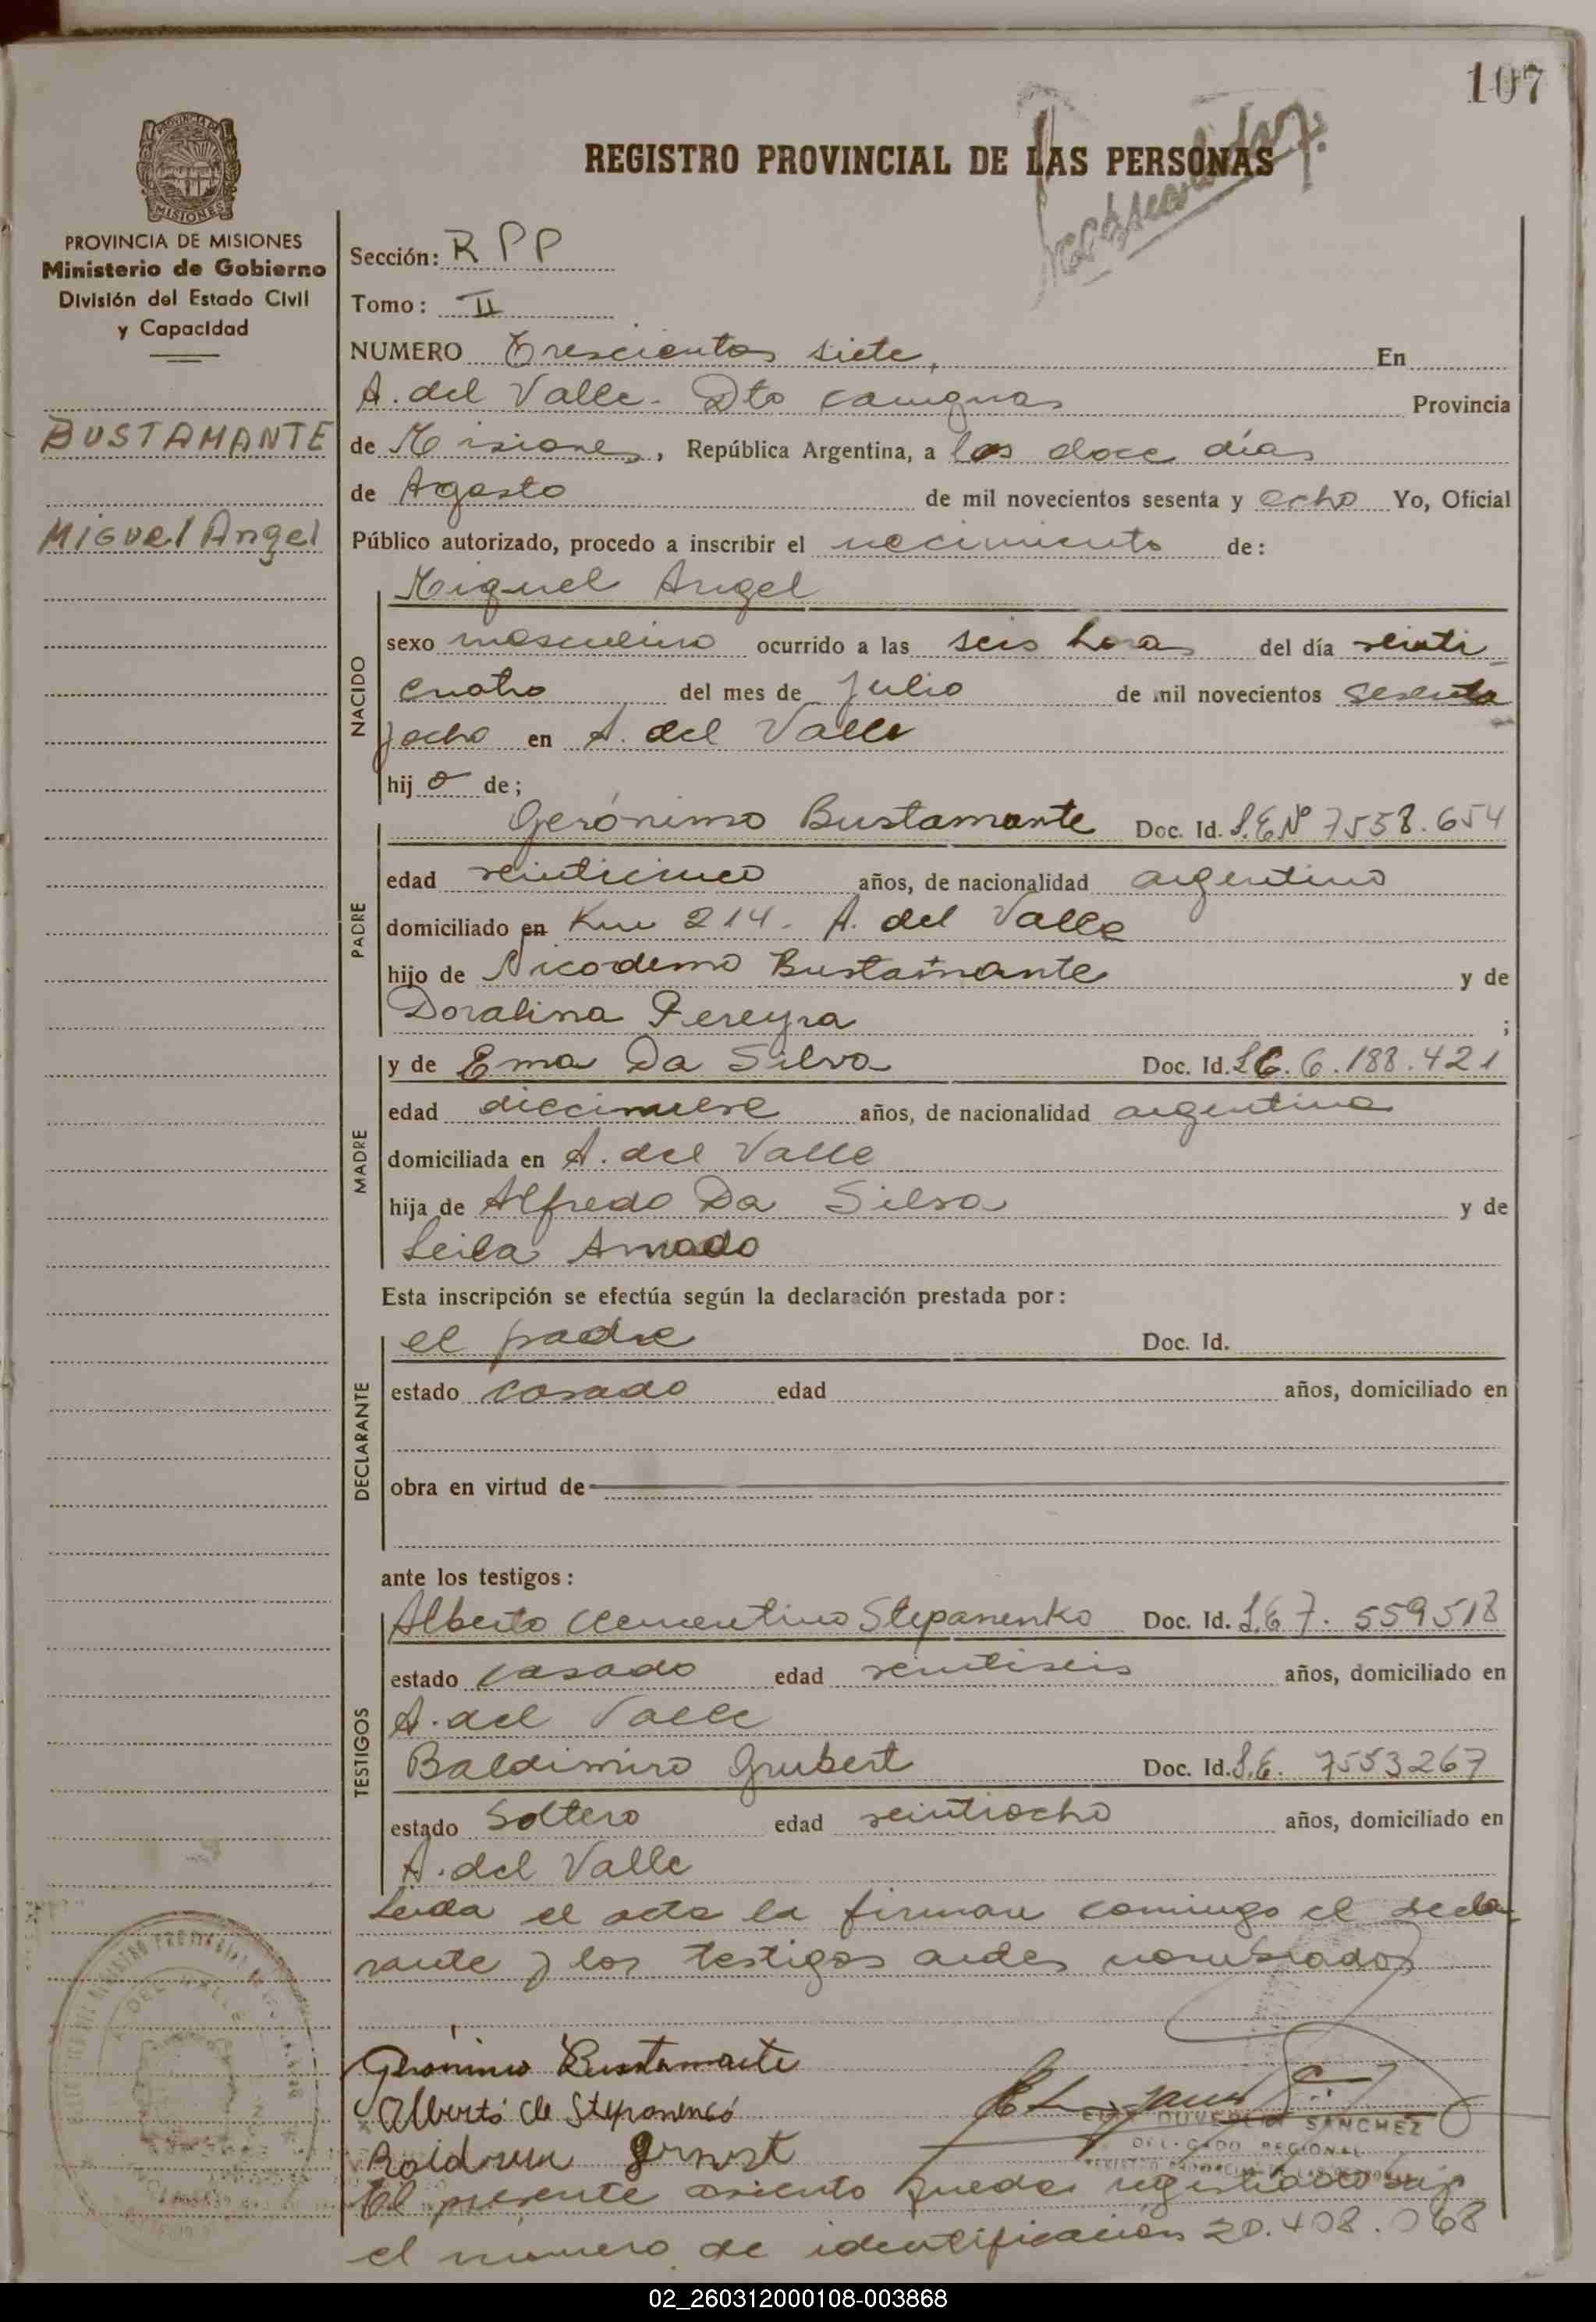 107
REGISTRO PROVINCIAL DE LAS PERSONAS
PROVINCIA DE
MISIONES
PROVINCIA DE MISIONES
Ministerio de Gobierno
División del Estado Civil
y Capacidad
BUSTAMANTE
Miguel Angel
Sección: R P P
Tomo: II
NUMERO Trescientos siete, En
A. del Valle - Dto Cainguas Provincia
de Misiones, República Argentina, a los doce días
de Agosto de mil novecientos sesenta y ocho Yo, Oficial
Público autorizado, procedo a inscribir el nacimiento de:
NACIDO
Miguel Angel
sexo masculino ocurrido a las seis horas del día veinti
cuatro del mes de Julio de mil novecientos sesenta
y ocho en A. del Valle
hijo de;
PADRE
Gerónimo Bustamante Doc. Id. L.E Nº 7558.654
edad veinticinco años, de nacionalidad argentino
domiciliado en Km 214. A. del Valle
hijo de Nicodemo Bustamante y de
Doralina Pereyra ;
MADRE
y de Ema Da Silva Doc. Id. LC. 6.188.421
edad diecinueve años, de nacionalidad argentina
domiciliada en A. del Valle
hija de Alfredo Da Silva y de
Leila Amado
Esta inscripción se efectúa según la declaración prestada por:
DECLARANTE
el padre Doc. Id.
estado casado edad años, domiciliado en
obra en virtud de
ante los testigos:
TESTIGOS
Alberto Clementino Stepanenko Doc. Id. L.E 7. 559518
estado casado edad veintiseis años, domiciliado en
A. del Valle
Baldimiro Grubert Doc. Id. L.E. 7553267
estado Soltero edad veintiocho años, domiciliado en
A. del Valle
Leida el acta la firman conmigo el decla-
rante y los testigos antes nombrados
Gerónimo Bustamante
Alberto Cle Stepanenco
DUVERLIO SANCHEZ
DELEGADO REGIONAL
El presente asiento queda registrado bajo
el numero de identificación 20.408.068
02_260312000108-003868